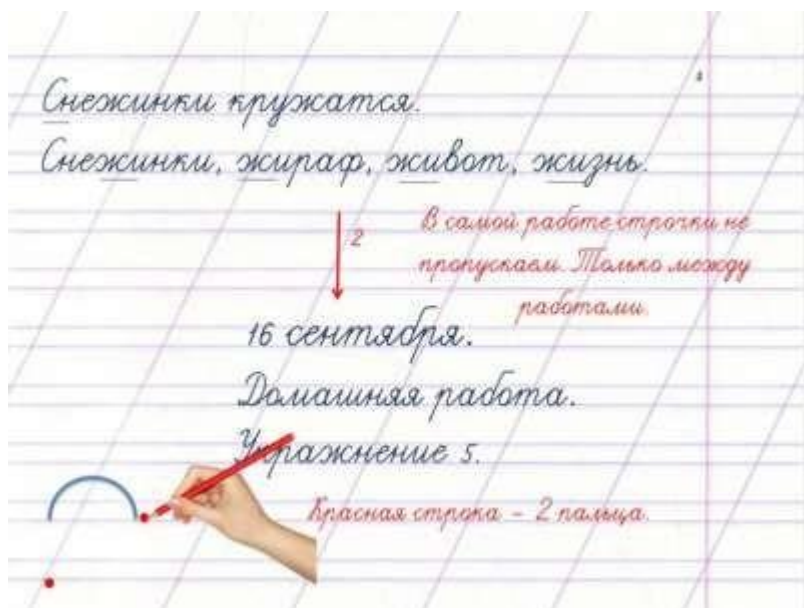 Снежинки кружатся.
Снежинки, жираф, живот, жизнь.
2
В самой работе строчки не
пропускаем. Только между
работами.
16 сентября.
Домашняя работа.
Упражнение 5.
Красная строка – 2 пальца.